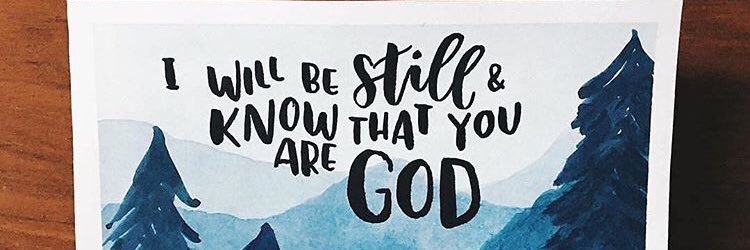 I WILL BE still &
KNOW THAT YOU
ARE GOD